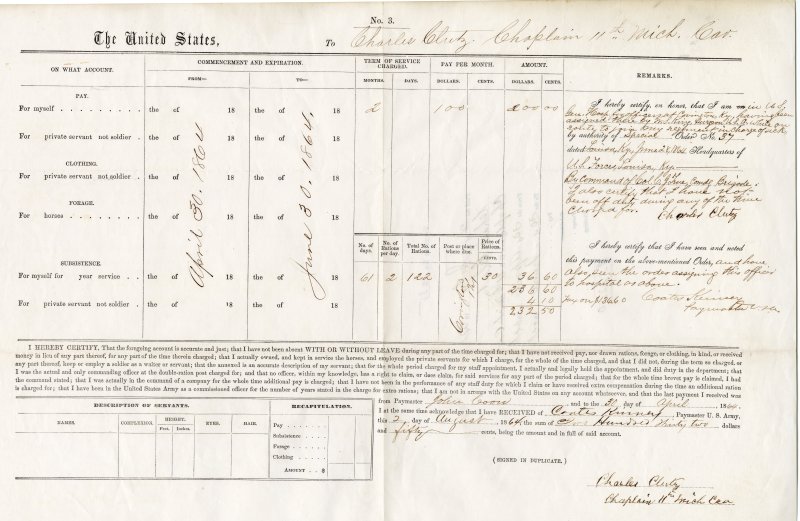 No. 3.
The United States,
To Charles Clutz, Chaplain 11th Mich. Cav.
ON WHAT ACCOUNT.
COMMENCEMENT AND EXPIRATION.
FROM— TO—
TERM OF SERVICE CHARGED.
MONTHS. DAYS.
PAY PER MONTH.
DOLLARS. CENTS.
AMOUNT.
DOLLARS. CENTS.
REMARKS.
PAY.
For myself . . . . . . . . . the of 18 the of 18 2 100 200 00
For private servant not soldier . the of 18 the of 18
CLOTHING.
For private servant not soldier . the of 18 the of 18
FORAGE.
For horses . . . . . . . . the of 18 the of 18
April 30. 1864
June 30. 1864.
No. of days. No. of Rations per day. Total No. of Rations. Post or place where due. Price of Rations. CENTS.
SUBSISTENCE.
For myself for year service . . the of 18 the of 18 61 2 122 Covington Ky 30 36 60
236 60
For private servant not soldier . the of 18 the of 18 4 10
232 50
I hereby certify, on honor, that I am on in U.S.
by authority of Special Order No 37
dated Louisa, Ky, Headquarters of
U.S. Forces Louisa, Ky
By Command of Brigade.
I also certify that I have not
been off duty during any of the time
charged for.
Charles Clutz
I hereby certify that I have seen and noted
this payment on the above-mentioned Order, and have
also seen the order assigning this officer
to hospital as above.
Tax on $136.60 Coates Kinney
Paymaster
I HEREBY CERTIFY, That the foregoing account is accurate and just; that I have not been absent WITH OR WITHOUT LEAVE during any part of the time charged for; that I have not received pay, nor drawn rations, forage, or clothing, in kind, or received
money in lieu of any part thereof, for any part of the time therein charged; that I actually owned, and kept in service the horses, and employed the private servants for which I charge, for the whole of the time charged, and that I did not, during the term so charged, or
any part thereof, keep or employ a soldier as a waiter or servant; that the annexed is an accurate description of my servant; that for the whole period charged for my staff appointment, I actually and legally held the appointment, and did duty in the department; that
I was the actual and only commanding officer at the double-ration post charged for; and that no officer, within my knowledge, has a right to claim, or does claim, for said services for any part of the period charged; that for the whole time brevet pay is claimed, I had
the command stated; that I was actually in the command of a company for the whole time additional pay is charged; that I have not been in the performance of any staff duty for which I claim or have received extra compensation during the time an additional ration
is charged for; that I have been in the United States Army as a commissioned officer for the number of years stated in the charge for extra rations; that I am not in arrears with the United States on any account whatsoever, and that the last payment I received was
from Paymaster John Coon and to the 30 day of April 1864.
I at the same time acknowledge that I have RECEIVED of Coates Kinney, Paymaster U. S. Army,
this 2 day of August, 1864, the sum of Two Hundred thirty two dollars
and fifty cents, being the amount and in full of said account.
DESCRIPTION OF SERVANTS.
NAMES. COMPLEXION. HEIGHT. Feet. Inches. EYES. HAIR.
RECAPITULATION.
Pay . . . .
Subsistence .
Forage . . .
Clothing . . .
AMOUNT . . $
(SIGNED IN DUPLICATE.)
Charles Clutz
Chaplain 11th Mich Cav